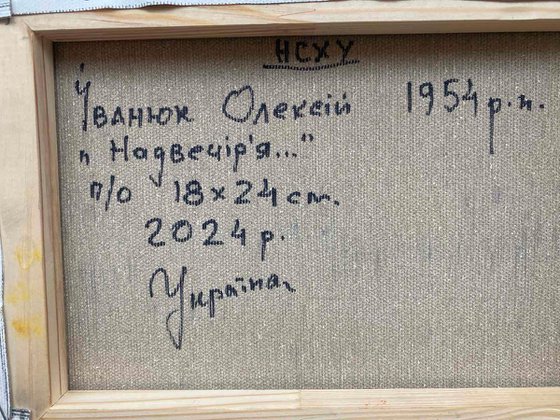 НСХУ
Іванюк Олексій 1954 р.н.
"Надвечір'я..."
п/о 18×24 cm.
2024 р.
Україна